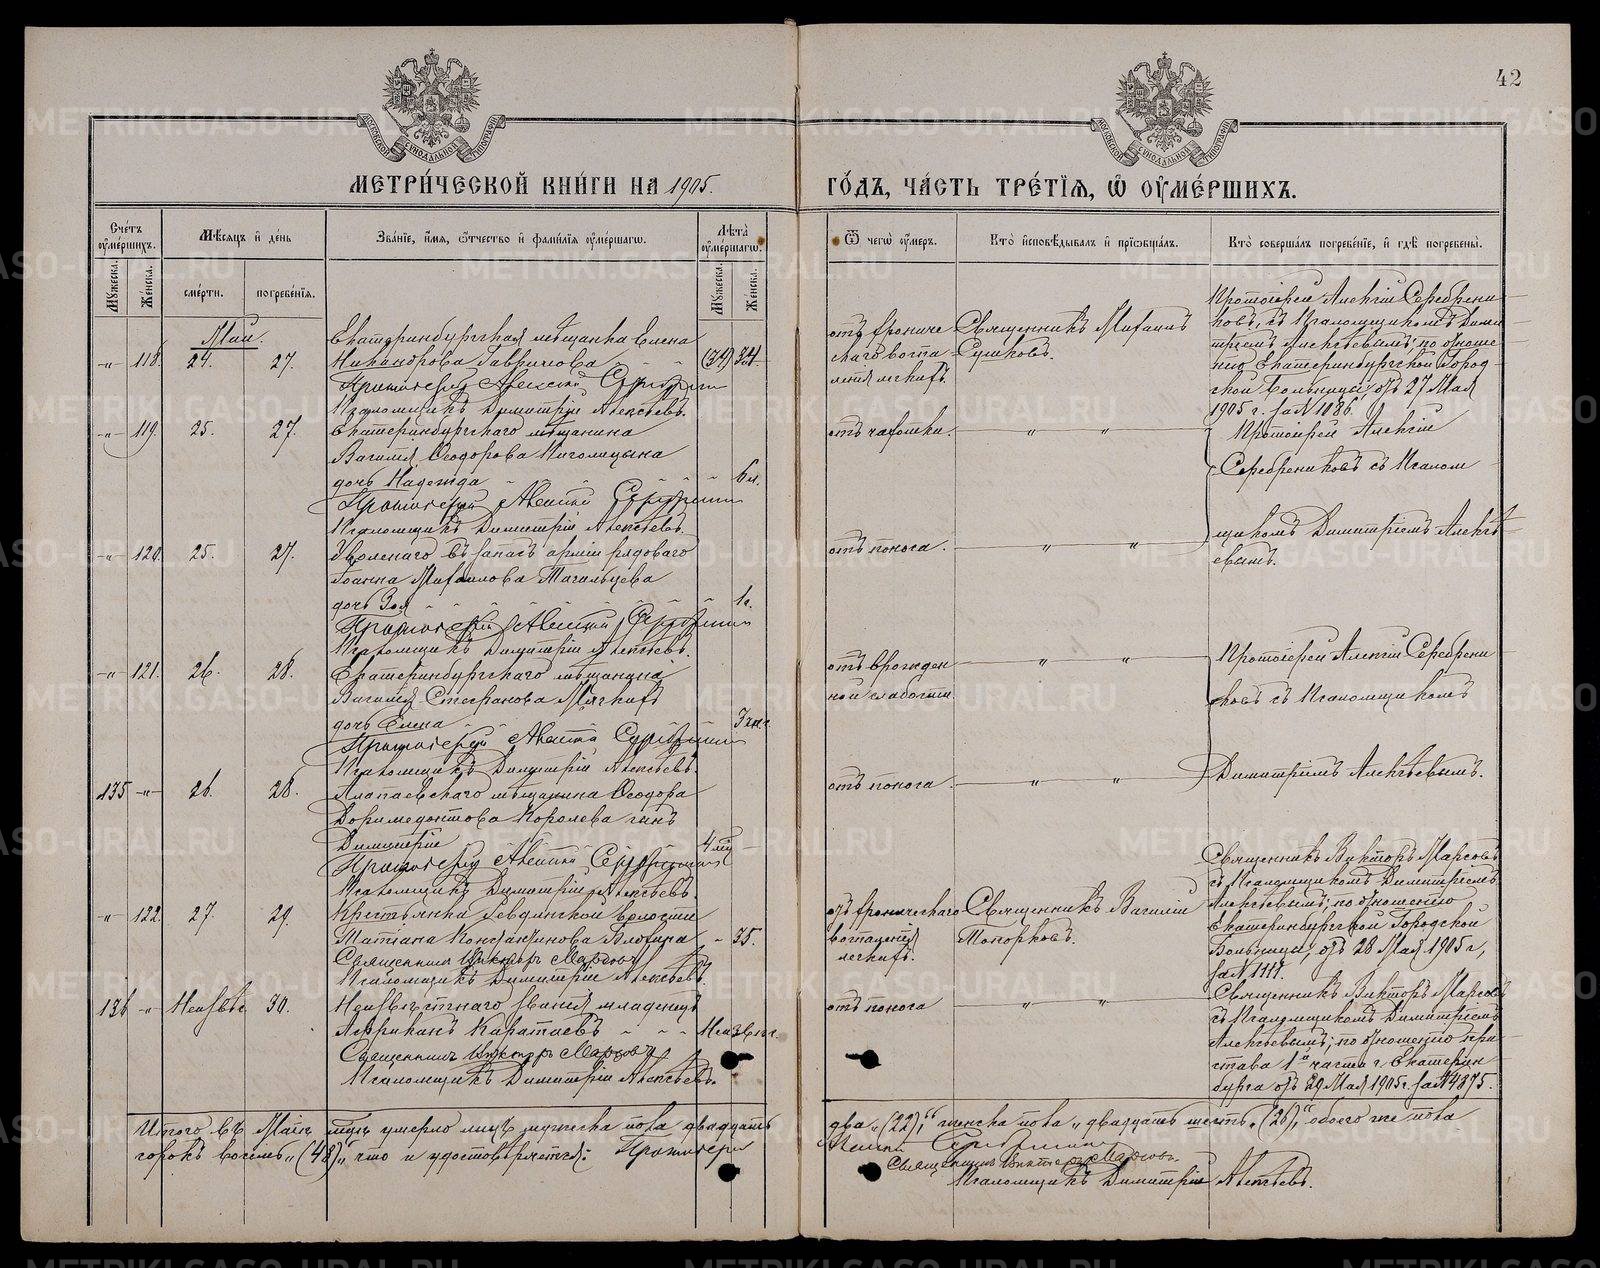 42
МЕТРИ́ЧЕСКОЙ КНИ́ГИ НА 1905.
ГО́ДЪ, ЧА́СТЬ ТРЕ́ТІѦ, Ѡ҆ ОУ҆МЕ́РШИХЪ.
МОСКОВСКОЙ СѴНОДАЛЬНОЙ ТИПОГРАФІИ
МОСКОВСКОЙ СѴНОДАЛЬНОЙ ТИПОГРАФІИ
Сче́тъ оу҆ме́ршихъ.
Мѣ́сяцъ и҆ де́нь
Зва́ніе, и҆́мя, ѻ҆́тчество и҆ фами́лія оу҆ме́ршагѡ.
Лѣ́та оу҆ме́ршагѡ.
Ѿ чегѡ̀ оу҆́меръ.
Кто̀ и҆сповѣ́дывалъ и҆ прїѡбща́лъ.
Кто̀ соверша́лъ погребе́ніе, и҆ гдѣ̀ погребены̀.
Мꙋ́жеска. Же́нска. сме́рти. погребе́нія. Мꙋ́жеска. Же́нска.
Май.
-"- 118. 24. 27. Екатеринбургская мѣщанка Елена
Никанорова Гаврилова (34) 34
Протоіерей Алексій Серебренниковъ
Псаломщикъ Димитрій Алексѣевъ.
отъ хрониче
скаго воспа
ленія легкихъ.
Священникъ Михаилъ
Сушковъ.
Протоіерей Алексій Серебрени
ковъ, съ Псаломщикомъ Дими
тріемъ Алексѣевымъ; по отноше
нію Екатеринбургской Город
ской Больницы, отъ 27 Мая
1905 г. за № 1086.
-"- 119. 25. 27. Екатеринбургскаго мѣщанина
Василія Ѳеодорова
дочь Надежда 6 м.
Протоіерей Алексій Серебренниковъ
Псаломщикъ Димитрій Алексѣевъ.
отъ чахотки. " "
Протоіерей Алексій
Серебрениковъ съ Псалом
-"- 120. 25. 27. Уволеннаго въ запасъ арміи рядоваго
Іоанна Михаилова Тагильцева
дочь Зоя 1 г.
Протоіерей Алексій Серебренниковъ
Псаломщикъ Димитрій Алексѣевъ.
отъ поноса. " "
щикомъ Димитріемъ Алексѣ
евымъ.
-"- 121. 26. 28. Екатеринбургскаго мѣщанина
Василія Стефанова Мягкихъ
дочь Елена 3 мѣс
Протоіерей Алексій Серебренниковъ
Псаломщикъ Димитрій Алексѣевъ.
отъ врожден
ной слабости. " "
Протоіерей Алексій Серебрени
ковъ съ Псаломщикомъ
135 -"- 26. 28. Алапаевскаго мѣщанина Ѳеодора
Доримедонтова Королева сынъ
Димитрій 4 мѣс
Протоіерей Алексій Серебренниковъ
Псаломщикъ Димитрій Алексѣевъ.
отъ поноса " "
Димитріемъ Алексѣевымъ.
-"- 122. 27. 29. Крестьянка Ревдинской волости
Татіана Константинова - 35.
Священникъ Викторъ Марсовъ
Псаломщикъ Димитрій Алексѣевъ.
отъ хроническаго
воспаленія
легкихъ.
Священникъ Василій
Топорковъ.
Священникъ Викторъ Марсовъ
съ Псаломщикомъ Димитріемъ
Алексѣевымъ; по отношенію
Екатеринбургской Городской
Больницы, отъ 28 Мая 1905 г,
за № 1111.
136 -"- Неизвѣс. 30. Неизвѣстнаго званія младенецъ
Африканъ Каратаевъ - - - Неизвѣст.
Священникъ Викторъ Марсовъ
Псаломщикъ Димитрій Алексѣевъ.
отъ поноса " "
Священникъ Викторъ Марсовъ
съ Псаломщикомъ Димитріемъ
Алексѣевымъ; по отношенію при
става 1й части г. Екатерин
бурга отъ 29 Мая 1905 г. за № 4875.
Итого въ Маѣ мцѣ умерло лицъ мужеска пола двадцать
два „(22)", женска пола „двадцать шесть„ (26)", обоего же пола
сорокъ восемь„ (48)", что и удостовѣряется: Протоіерей
Алексій Серебренниковъ
Священникъ Викторъ Марсовъ.
Псаломщикъ Димитрій Алексѣевъ.
METRIKI.GASO-URAL.RU